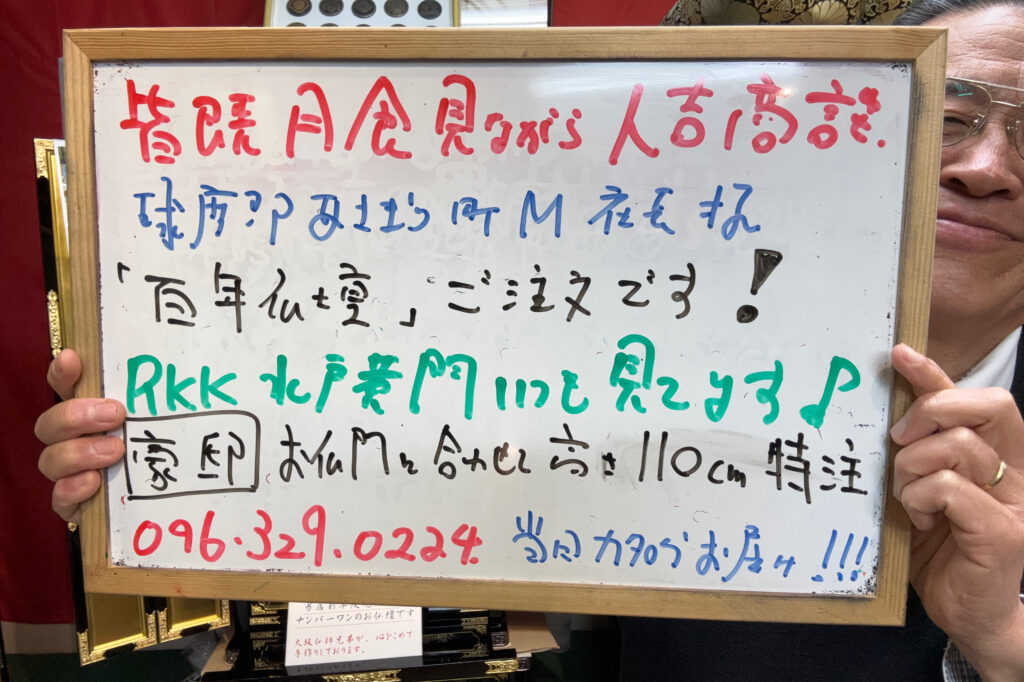 皆既月食見ながら人吉商談.
球磨郡あさぎり町M社長様
「百年仏壇」ご注文です!
RKK水戸黄門いつも見てます♪
豪邸 お仏間に合わせて高さ110cm特注
096.329.0224 当日カタログお届け!!!
ナンバーワンのお仏壇です
大阪仏師兄弟が、心をこめて
手作りしております。